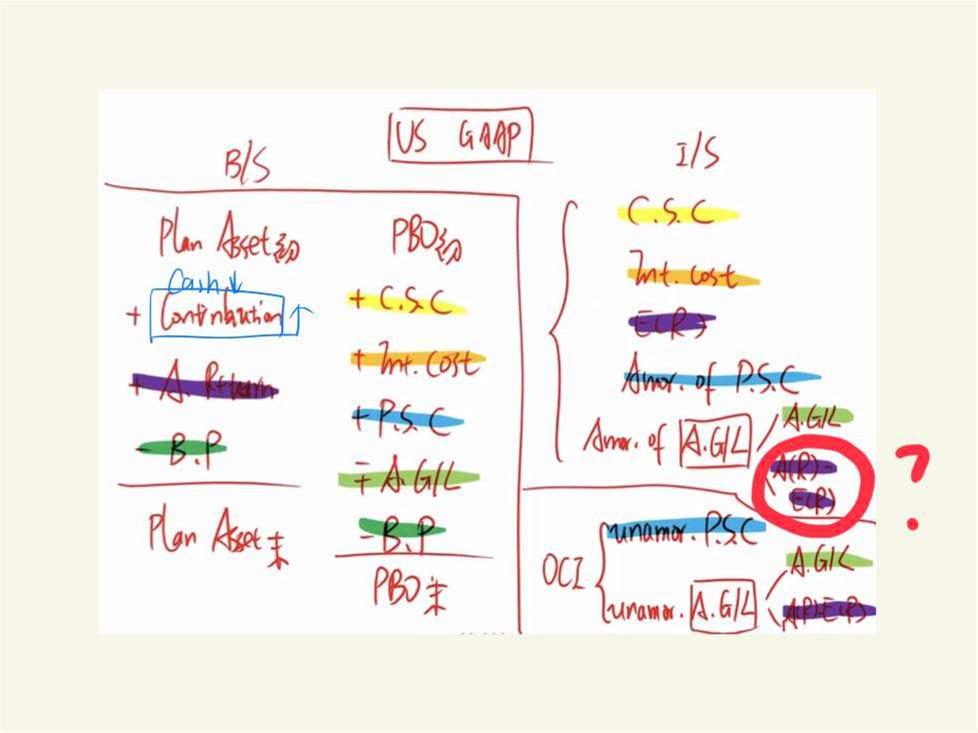 US GAAP
B/S
Plan Asset初
Cash↓
+ Contribution ↑
+ A. Return
- B.P
Plan Asset末
PBO初
+ C.S.C
+ Int. Cost
+ P.S.C
∓ A.G/L
- B.P
PBO末
I/S
C.S.C
Int. cost
E(R)
Amor. of P.S.C
Amor. of A.G/L
A.G/L
A(R)-
E(R)
?
OCI
unamor. P.S.C
unamor. A.G/L
A.G/L
A(R)-E(R)